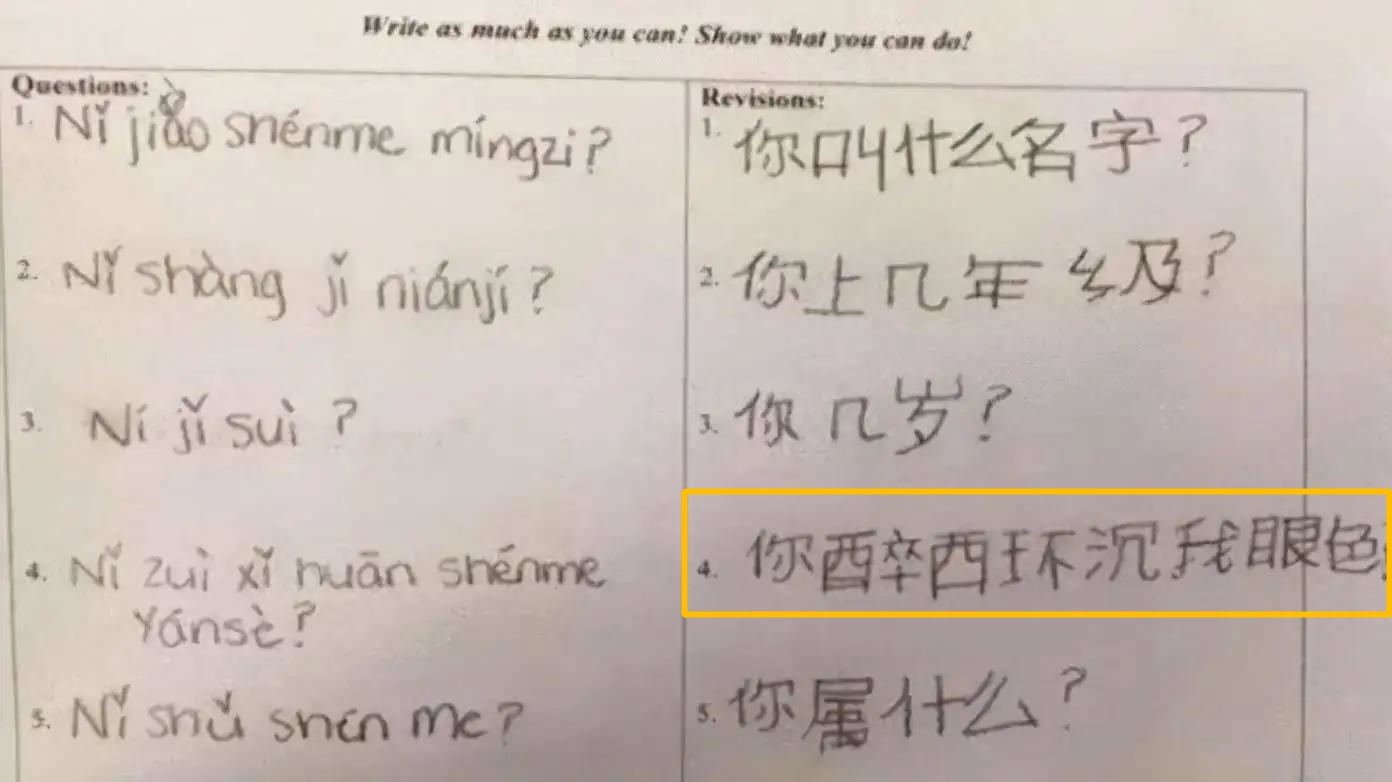 Write as much as you can! Show what you can do!
Questions:
1. Nǐ jiào shénme míngzi?
2. Nǐ shàng jǐ niánjí?
3. Ní jǐ suì?
4. Nǐ zuì xǐ huān shénme
Yánsè?
5. Nǐ shǔ shén me?
Revisions:
1. 你叫什么名字?
2. 你上几年级?
3. 你几岁?
4. 你醉西环沉我眼色
5. 你属什么?